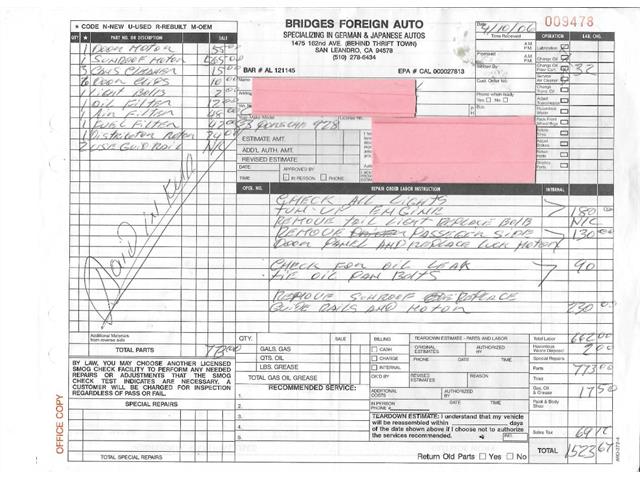 ★ CODE N-NEW U-USED R-REBUILT M-OEM
QTY. PART NO. OR DESCRIPTION SALE
1 DOOR MOTOR 55 00
1 SUNROOF MOTOR
3 CANS CLEANER 15
10 DOOR CLIPS 10 00
1 LIGHT BOLBS 2 00
1 OIL FILTER 12 00
1 AIR FILTER 48 00
1 FUEL FILTER
1 DISTRIBUTOR ROTOR 24 00
2 USE GUID RAIL N/C
Paid in Full
Additional Materials
from reverse side
TOTAL PARTS 773 00
BY LAW, YOU MAY CHOOSE ANOTHER LICENSED
SMOG CHECK FACILITY TO PERFORM ANY NEEDED
REPAIRS OR ADJUSTMENTS THAT THE SMOG
CHECK TEST INDICATES ARE NECESSARY. A
CUSTOMER WILL BE CHARGED FOR INSPECTION
REGARDLESS OF PASS OR FAIL.
SPECIAL REPAIRS
TOTAL SPECIAL REPAIRS
OFFICE COPY
BRIDGES FOREIGN AUTO
SPECIALIZING IN GERMAN & JAPANESE AUTOS
1475 162nd AVE. (BEHIND THRIFT TOWN)
SAN LEANDRO, CA 94578
(510) 278-6434
BAR # AL 121145 EPA # CAL 000027813
009478
Time Received
Promised
Phone when ready
Yes No
OPERATION LAB. CHG.
Lubrication
Change Oil
32
PORSCHE 928
ESTIMATE AMT.
ADD'L AUTH. AMT.
REVISED ESTIMATE
DATE APPROVED BY
TIME IN PERSON PHONE
OPER. NO. REPAIR ORDER LABOR INSTRUCTION INTERNAL
CHECK ALL LIGHTS
TUN-UP ENGINE 180
REMOVE TAIL LIGHT REPLACE BOLB N/C
REMOVE PASSEGER SIDE 130 00
DOOR PANEL AND REPLACE LOCK MOTOR
CHECK FOR OIL LEAK 90
TIE OIL PAN BOLTS
REMOVE SUNROOF REPLACE
GUIDE RAILS AND MOTOR 230 00
QTY. SALE
GALS. GAS
QTS. OIL
LBS. GREASE
TOTAL GAS OIL GREASE
RECOMMENDED SERVICE:
1.
2.
3.
4.
5.
BILLING
CASH
CHARGE
INTERNAL
TEARDOWN ESTIMATE - PARTS AND LABOR
ORIGINAL ESTIMATES AUTHORIZED BY
PHONE DATE TIME
OK'D BY REVISED ESTIMATES
ADDITIONAL COSTS AUTHORIZED BY
IN PERSON PHONE # DATE TIME
TEARDOWN ESTIMATE: I understand that my vehicle
will be reassembled within days
of the date shown above if I choose not to authorize
the services recommended.
Return Old Parts Yes No
Total Labor 662 00
Hazardous Waste Disposal 2 00
Parts 773 00
Tires
Gas, Oil & Grease 17 50
Paint & Body Shop
Sales Tax
TOTAL 1523 67